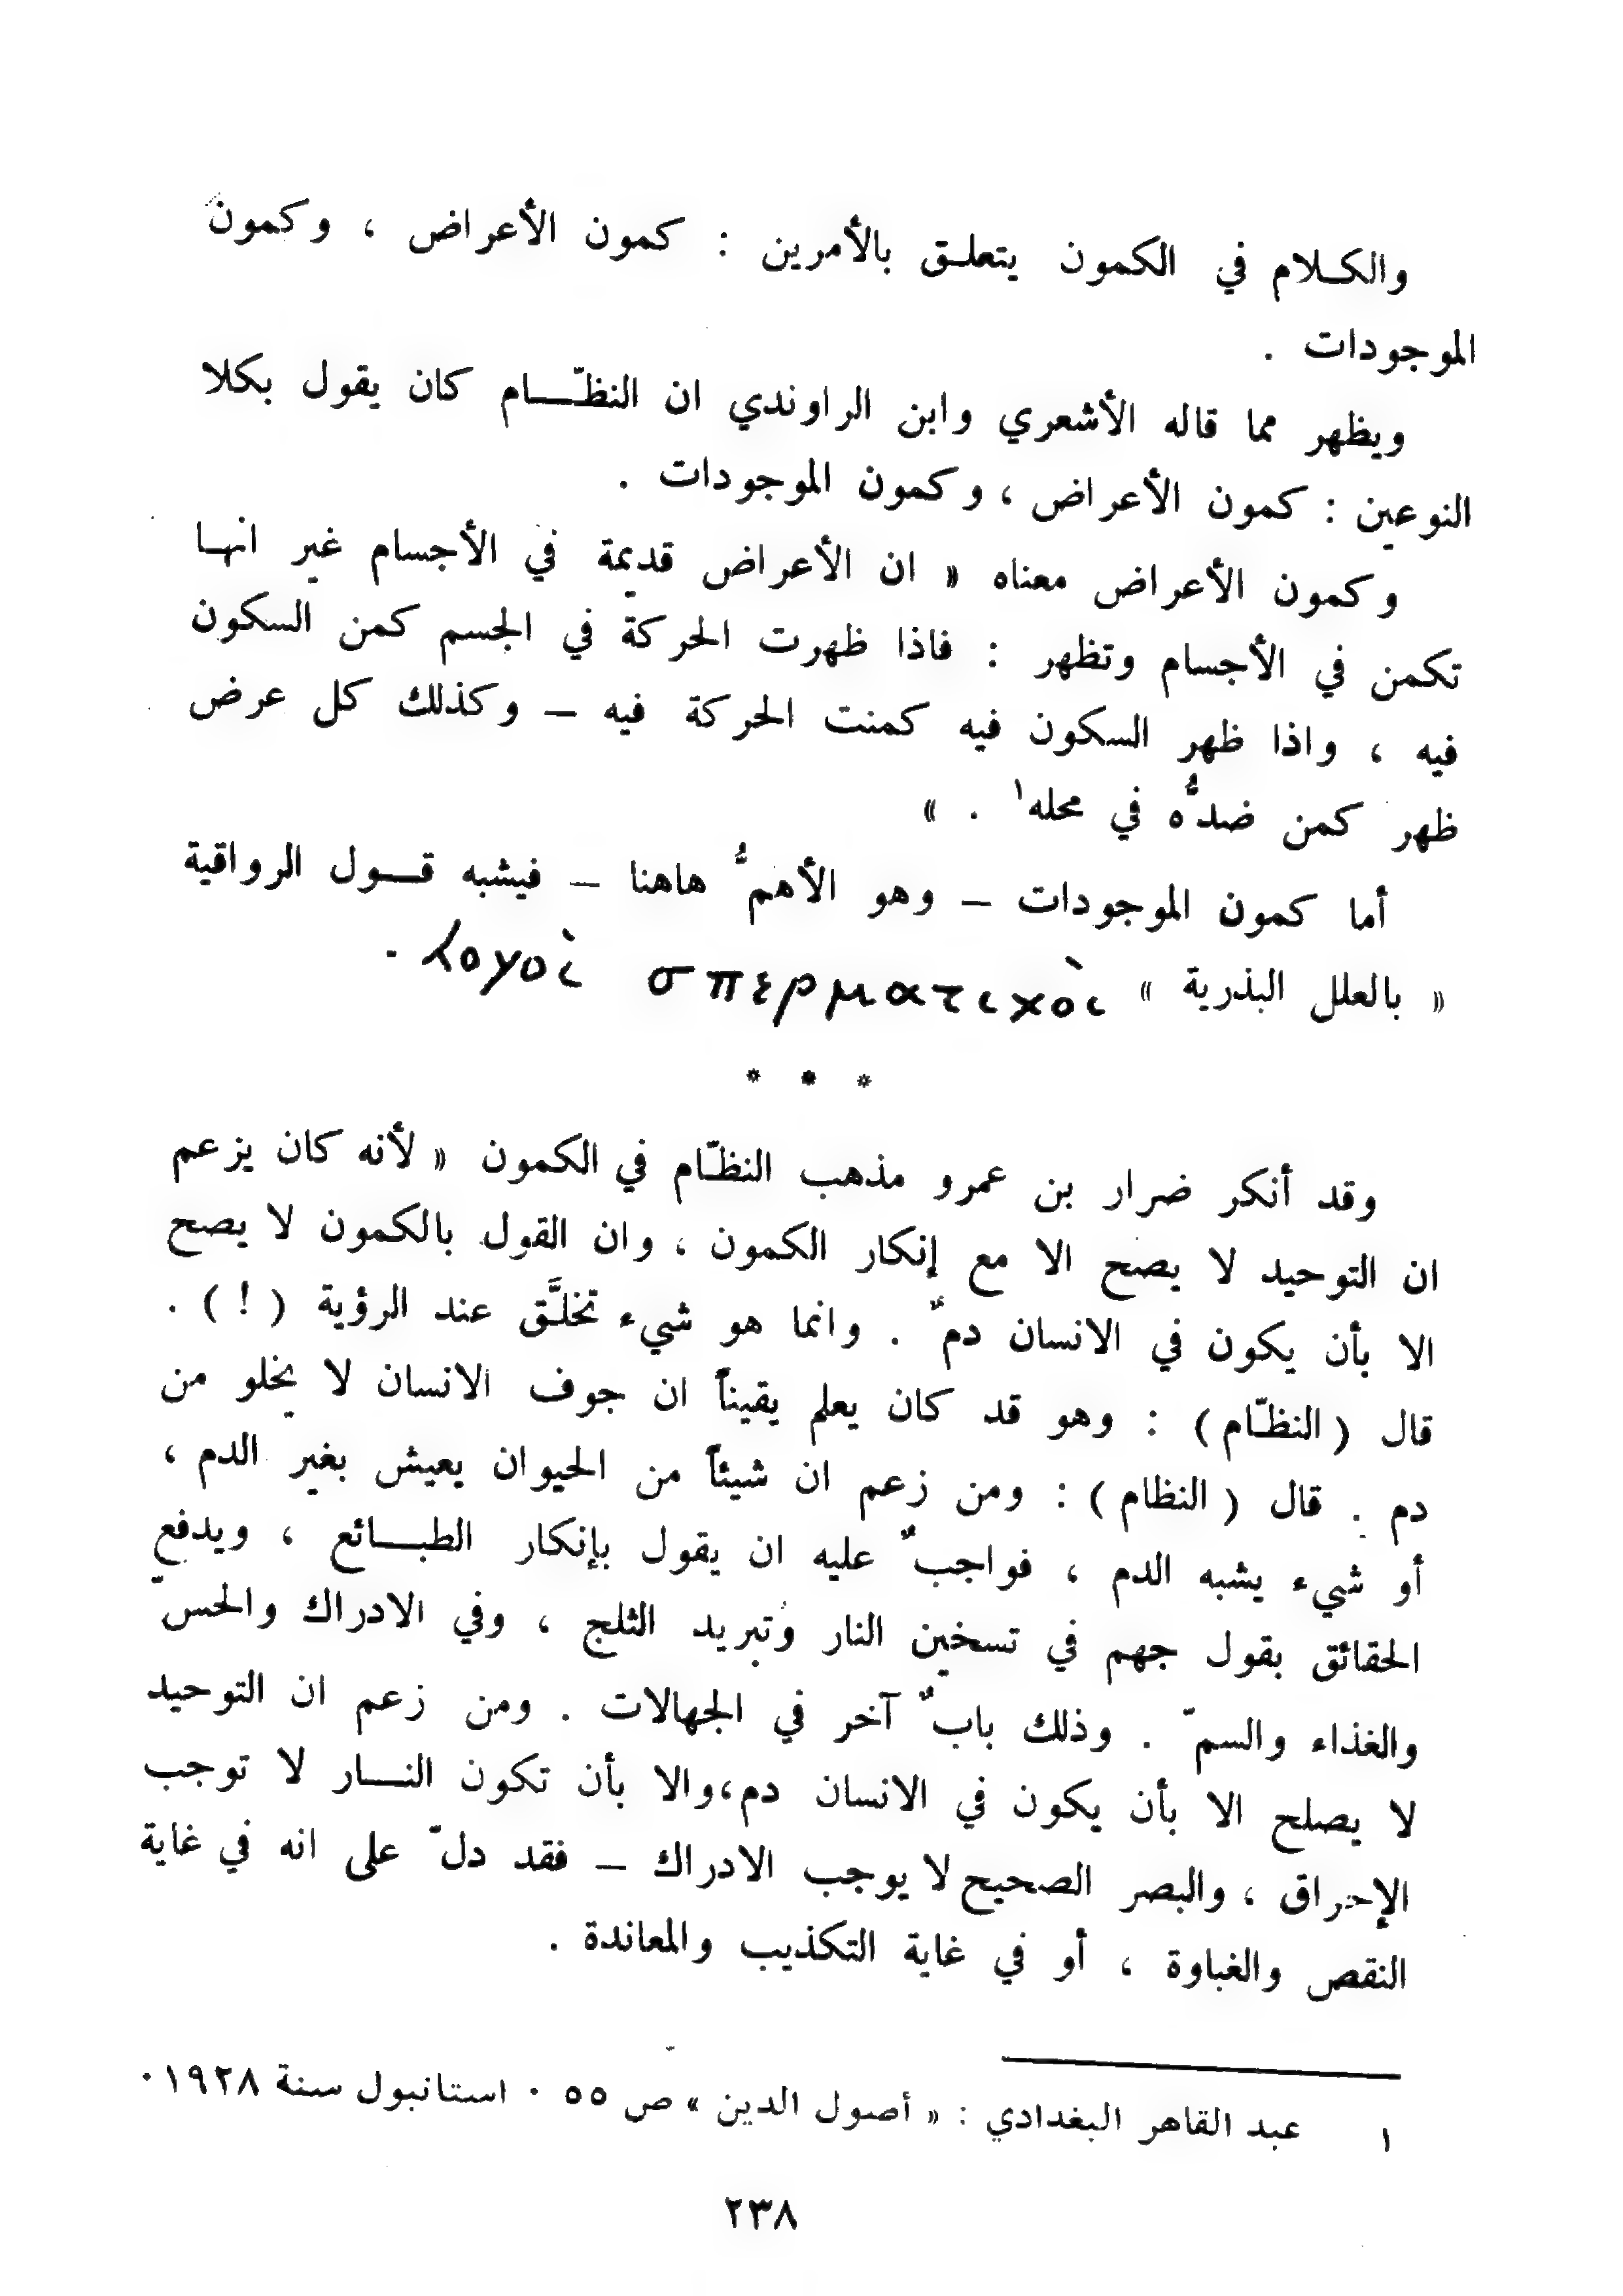 والكلام في الكمون يتعلق بالأمرين : كمون الأعراض ، وكمون
الموجودات .
ويظهر مما قاله الأشعري وابن الراوندي ان النظّام كان يقول بكلا
النوعين : كمون الأعراض ، وكمون الموجودات .
وكمون الأعراض معناه « ان الأعراض قديمة في الأجسام غير انها
تكمن في الأجسام وتظهر : فاذا ظهرت الحركة في الجسم كمن السكون
فيه ، واذا ظهر السكون فيه كمنت الحركة فيه – وكذلك كل عرض
ظهر كمن ضدُّه في محله١ . »
أما كمون الموجودات – وهو الأهمُّ هاهنا – فيشبه قول الرواقية
« بالعلل البذرية » λογοὶ σπερματικοὶ .
* * *
وقد أنكر ضرار بن عمرو مذهب النظّام في الكمون « لأنه كان يزعم
ان التوحيد لا يصح الا مع إنكار الكمون ، وان القول بالكمون لا يصح
الا بأن يكون في الانسان دمٌ . وانما هو شيء تخلَّق عند الرؤية ( ! ) .
قال ( النظّام ) : وهو قد كان يعلم يقيناً ان جوف الانسان لا يخلو من
دم . قال ( النظام ) : ومن زعم ان شيئاً من الحيوان يعيش بغير الدم ،
أو شيء يشبه الدم ، فواجبٌ عليه ان يقول بإنكار الطبائع ، ويدفع
الحقائق بقول جهم في تسخين النار وتبريد الثلج ، وفي الادراك والحسّ
والغذاء والسمّ . وذلك بابٌ آخر في الجهالات . ومن زعم ان التوحيد
لا يصلح الا بأن يكون في الانسان دم،والا بأن تكون النار لا توجب
الإحراق ، والبصر الصحيح لا يوجب الادراك – فقد دلّ على انه في غاية
النقص والغباوة ، أو في غاية التكذيب والمعاندة .
١ عبد القاهر البغدادي : « أصول الدين » ص ٥٥ . استانبول سنة ١٩٢٨.
٢٣٨